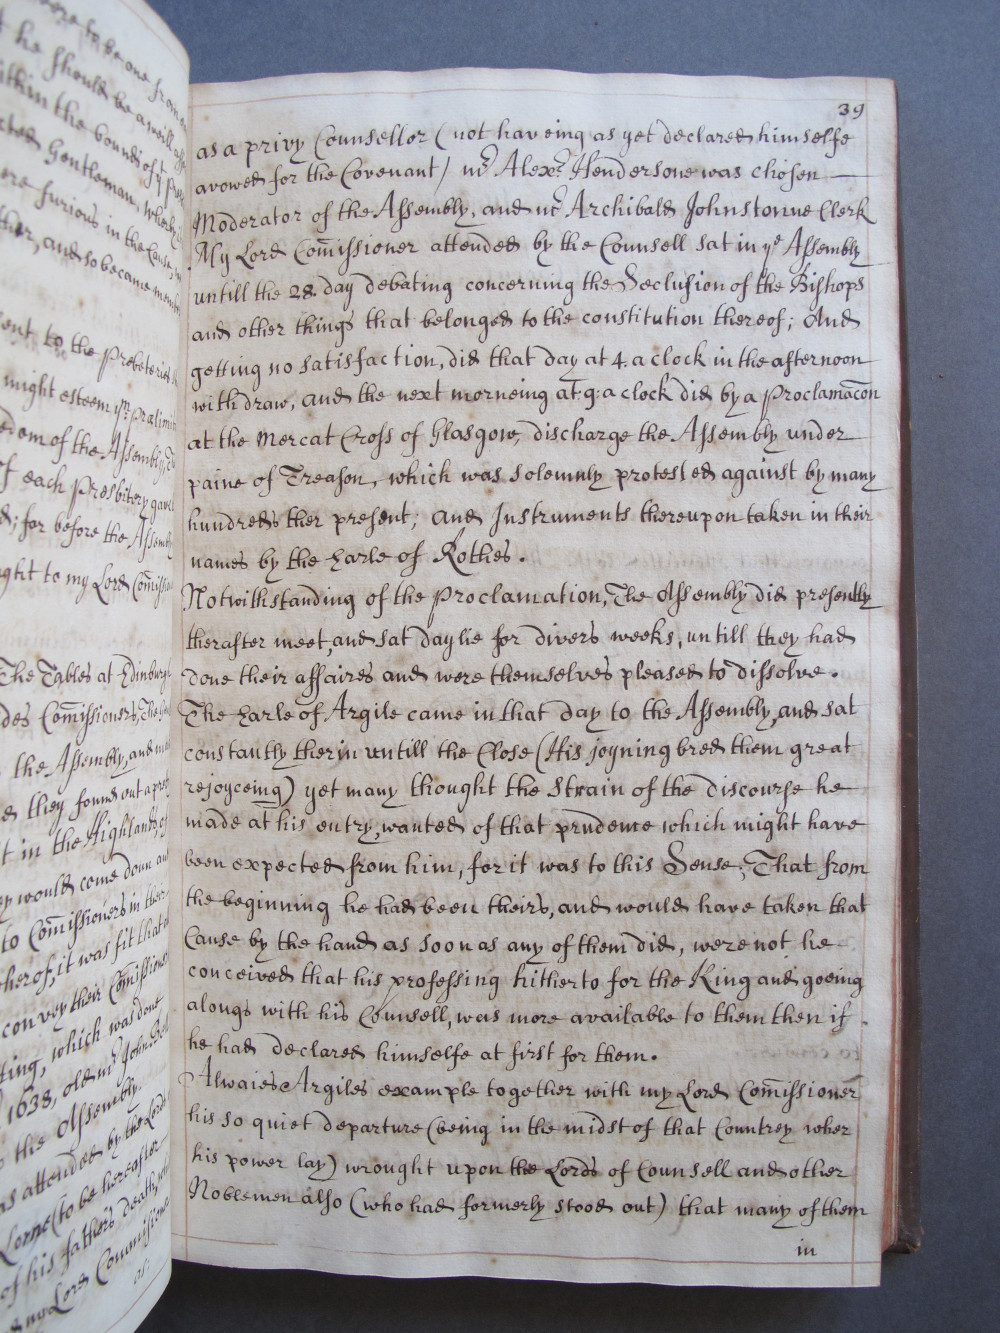 ore to be one from
he should be a weill
within the bounds of yt
cted Gentleman, which
re furious in the Cause,
ther, and so became
ent to the Presbeteries
might esteem
edom of the Assembly,
of each Presbitery gave
d; for before the Assembly
ght to my Lord
The Tables at Edinburgh
des Com̄issioners, The
the Assembly, and
ed they found out a
t in the Highlands of
ey would come doun and
to Com̄issioners in ther
therof, it was fit that
convey their Com̄issioners
ting, which was done
1638, old mr John Bell
the Assembly.
as attended by the Lords
Lorne (to be hereafter
of his fathers death,
d my Lord Commissioner
as:
39
as a privy Counsellor (not haveing as yet declared himselfe
avowed for the Covenant) mr Alexr Hendersone was chosen
Moderator of the Assembly, and mr Archibald Johnstonne Clerk
My Lord Com̄issioner attended by the Counsell sat in ye Assembly
untill the 28. day debating concerning the Seclusion of the Bishops
and other things that belonged to the constitution thereof; And
getting no satisfaction, did that day at 4. a clock in the afternoon
withdraw, and the next morneing at 9: a clock did by a Proclamac̄on
at the Mercat Cross of Glasgow, discharge the Assembly under
paine of Treason, which was solemnly protested against by many
hundreds ther present; and Instruments thereupon taken in their
names by the Earle of Rothes.
Notwithstanding of the Proclamation, The Assembly did presently
therafter meet, and sat daylie for divers weeks, untill they had
done their affaires and were themselves pleased to dissolve.
The Earle of Argile came in that day to the Assembly, and sat
constantly therin untill the Close (His joyning bred them great
rejoyceing) yet many thought the Strain of the discourse he
made at his entry, wanted of that prudence which might have
been expected from him, for it was to this Sense, That from
the beginning he had been theirs, and would have taken that
Cause by the hand as soon as any of them did, were not he
conceived that his professing hitherto for the King and goeing
alongs with his Counsell, was more available to them then if
he had declared himselfe at first for them.
Alwaies Argiles example together with my Lord Com̄issioner
his so quiet departure (being in the midst of that Countrey wher
his power lay) wrought upon the Lords of Counsell and other
Noblemen also (who had formerly stood out) that many of them
in